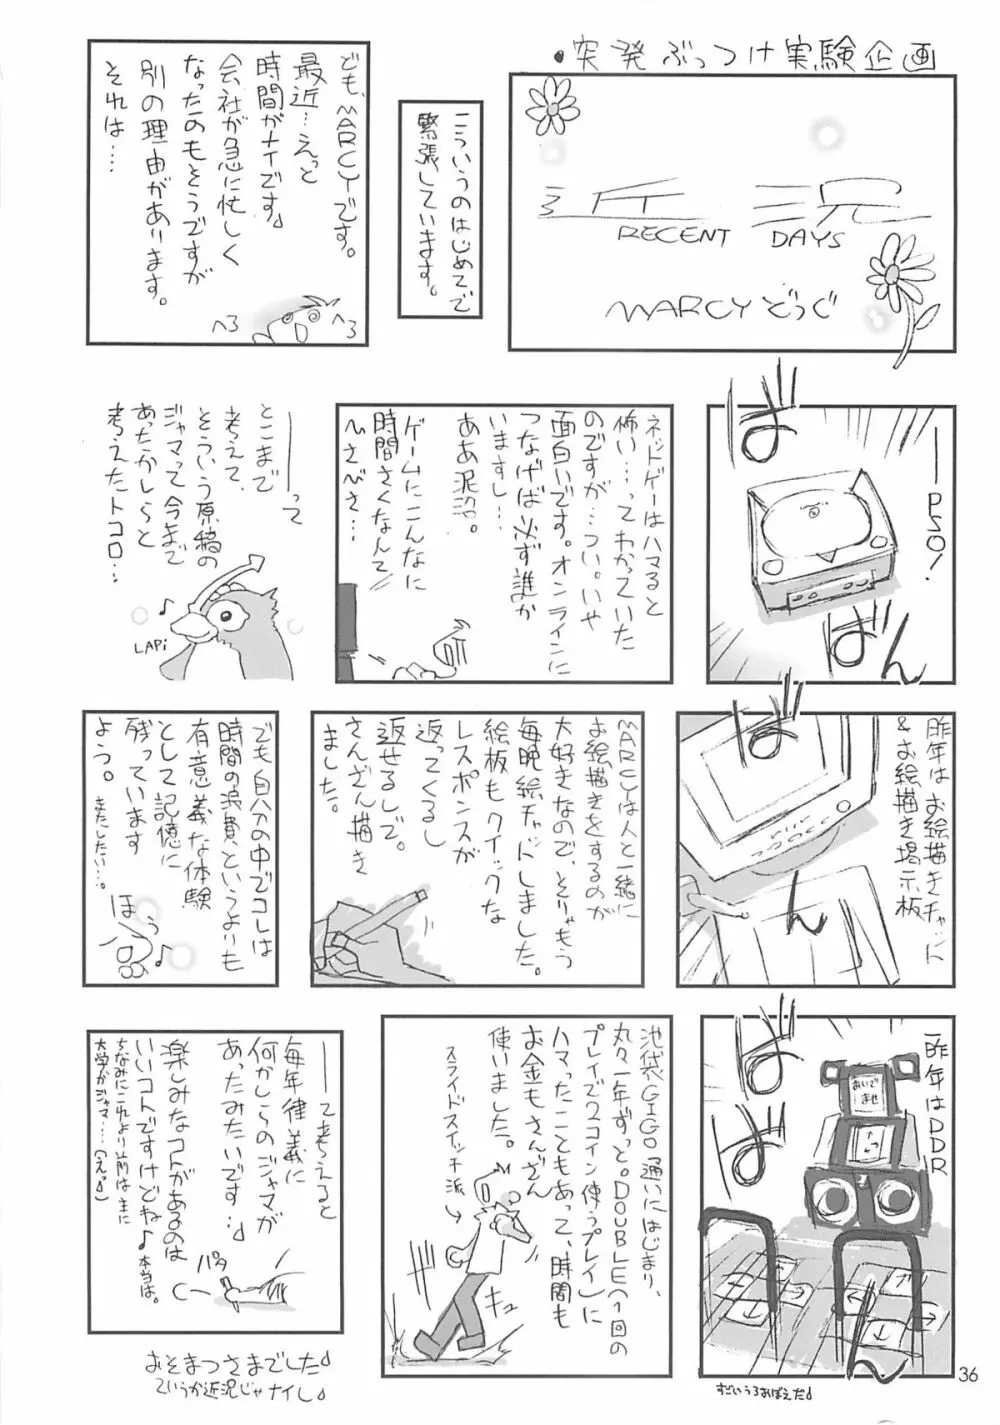 ・突発ぶっつけ実験企画
近況
RECENT DAYS
MARCYどうぐ
こういうのはじめてで
緊張しています。
ども、MARCYです。
最近…えっと
時間がナイです。
会社が急に忙しく
なったのもそうですが
別の理由があります。
それは…
へろ
へろ
──PSO!
ばばん
ネットゲーはハマると
怖い…ってわかっていた
のですが…つい。いや
面白いです。オンラインに
つなげば必ず誰か
いますし…
ああ泥沼。
ゲームにこんなに
時間さくなんて
──って
とこまで
考えて、
そういう原稿の
ジャマって今まで
あったかしらと
考えたトコロ…
♪
LAPi
昨年はお絵描きチャット
&お絵描き掲示板
ばん
MARCYは人と一緒に
お絵描きをするのが
大好きなので、そりゃもう
毎晩絵チャットしました。
絵板もクイックな
レスポンスが
返ってくるし
返せるしで。
さんざん描き
ました。
でも自分の中でコレは
時間の浪費というよりも
有意義な体験
として記憶に
残っています
よう。
またしたい…。
ほうっ
♪
一昨年はDDR
ばばーん
おいで
ませ
すごいうろおぼえだ
池袋GIGO通いにはじまり、
丸々一年ずっと。DOUBLE(1回の
プレイで2コイン使うプレイ)に
ハマったこともあって、時間も
お金もさんざん
使いました。
スライドスイッチ派
キュ
──て考えると
毎年律義に
何かしらのジャマが
あったみたいです…
楽しみなコトがあるのは
いいコトですけどね♪本当は。
ちなみにこれより以前は主に
大学がジャマ……(えっ)
パタ
おそまつさまでした
ていうか近況じゃナイし
36